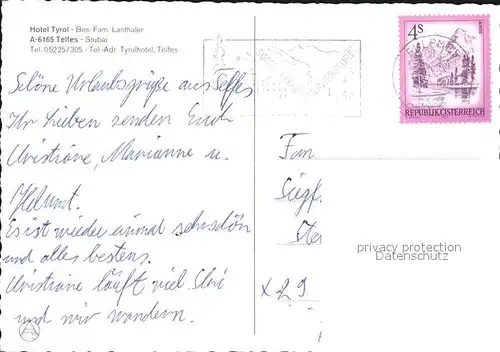 Hotel Tyrol - Bes. Fam. Lanthaler
A-6165 Telfes - Stubai
Tel. 05225/305 - Tel-Adr Tyrolhotel, Telfes
4S
REPUBLIK ÖSTERREICH
Schöne Urlaubsgrüße aus Telfes
Ihr Lieben senden Euch
Christiane, Marianne u.
Helmut.
Es ist wieder einmal sehr schön
und alles bestens.
Christiane läuft viel Ski
und wir wandern.
Fam
Siegf
privacy protection
Datenschutz
x 29